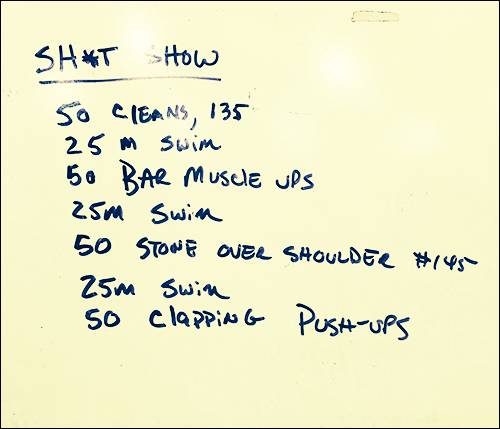 SH*T SHOW
50 CLEANS, 135
25 m SWIM
50 BAR MUSCLE UPS
25m SWIM
50 STONE OVER SHOULDER #145
25m SWIM
50 CLAPPING PUSH-UPS